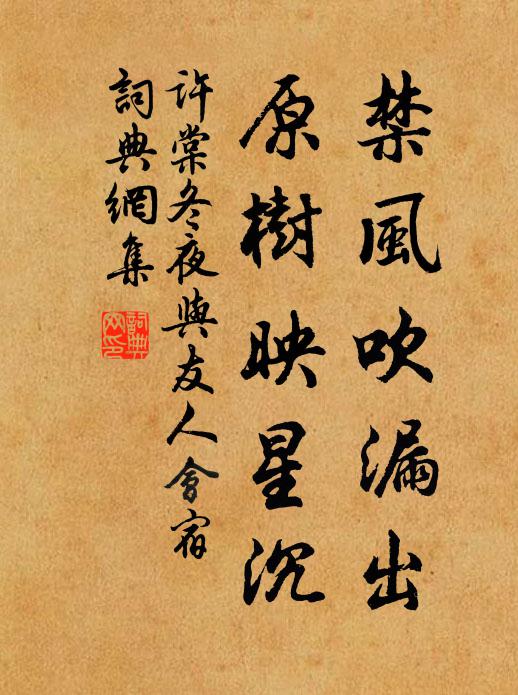 禁風吹漏出
原樹映星沉
許棠冬夜與友人會宿
詞典網集
詞典
網印